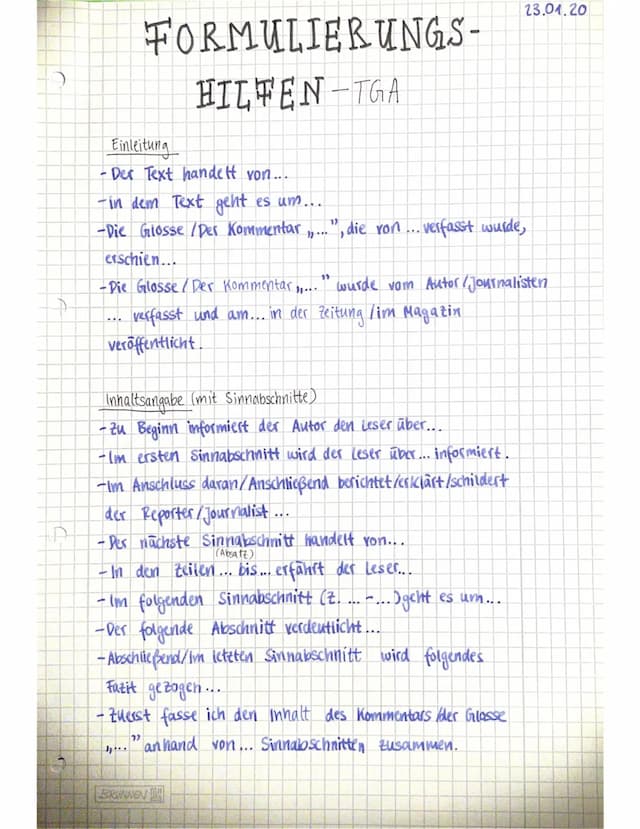 23.01.20
FORMULIERUNGS-
HILFEN - TGA
Einleitung
- Der Text handelt von...
- in dem Text geht es um...
- Die Glosse / Der Kommentar „...", die von ... verfasst wurde,
erschien...
- Die Glosse / Der Kommentar „..." wurde vom Autor / Journalisten
... verfasst und am... in der Zeitung / im Magazin
veröffentlicht.
Inhaltsangabe (mit Sinnabschnitte)
- Zu Beginn informiert der Autor den Leser über...
- Im ersten Sinnabschnitt wird der Leser über... informiert.
- Im Anschluss daran/Anschließend berichtet/erklärt/schildert
der Reporter/Journalist ...
- Der nächste Sinnabschnitt handelt von...
(Absatz)
- In den Zeilen... bis... erfährt der Leser...
- Im folgenden Sinnabschnitt (Z. ... - ...) geht es um...
- Der folgende Abschnitt verdeutlicht...
- Abschließend/Im letzten Sinnabschnitt wird folgendes
Fazit gezogen...
- Zuerst fasse ich den Inhalt des Kommentars /der Glosse
„..." anhand von... Sinnabschnitten zusammen.
BRUNNEN